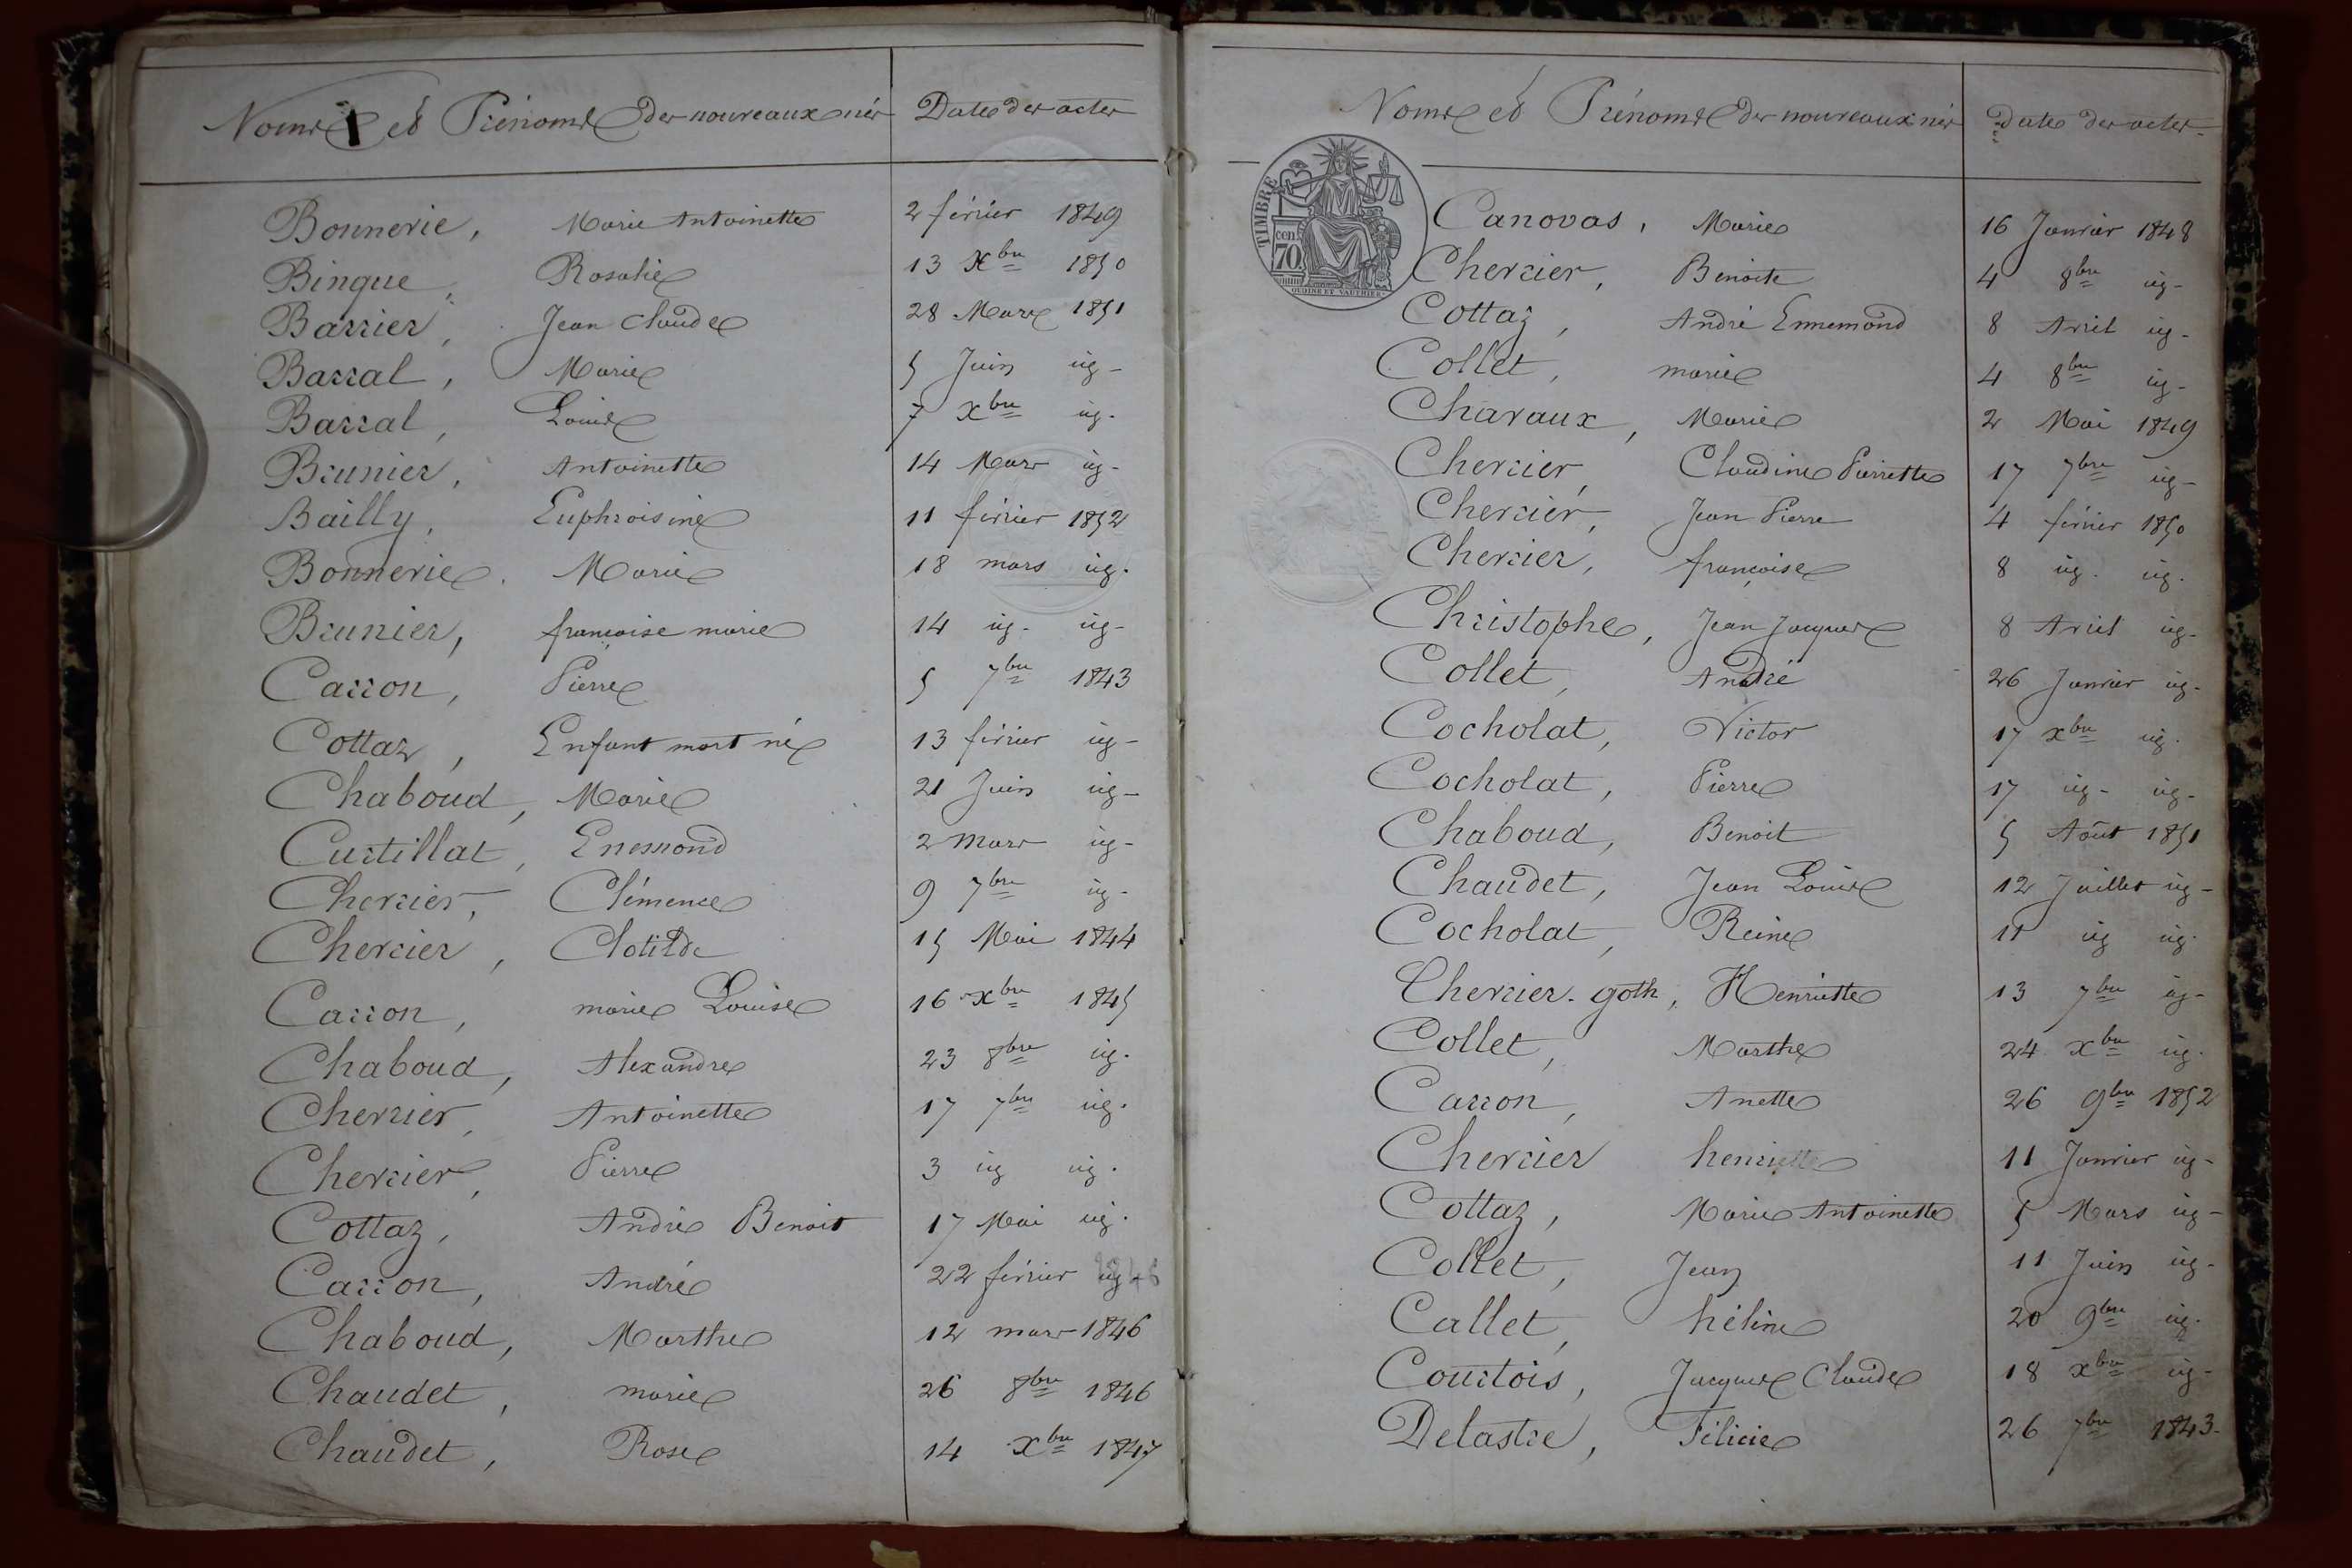 Noms et Prénoms des nouveaux nés Dates des actes
Bonnerie, Marie Antoinette 2 février 1849
Binque, Rosalie 13 Xbre 1850
Barrier, Jean Claude 28 Mars 1851
Barral, Marie 5 Juin ig-
Barral, Louis 7 Xbre ig.
Brunier, Antoinette 14 Mars ig-
Bailly, Euphroisine 11 février 1852
Bonnerie. Marie 18 mars ig.
Brunier, françoise marie 14 ig- ig-
Carron, Pierre 5 7bre 1843
Cottaz, Enfant mort né 13 février ig-
Chaboud, Marie 21 Juin ig-
Curtillat, Enemond 2 mars ig-
Cherrier, Clémence 9 7bre ig-
Cherrier, Clotilde 15 Mai 1844
Carron, marie Louise 16 Xbre 1845
Chaboud, Alexandre 23 8bre ig.
Cherrier, Antoinette 17 7bre ig.
Cherrier, Pierre 3 ig ig.
Cottaz, André Benoit 17 Mai ig.
Carron, André 22 février ig
Chaboud, Marthe 12 mars 1846
Chaudet, marie 26 8bre 1846
Chaudet, Rose 14 Xbre 1847
Noms et Prénoms des nouveaux nés Dates des actes
TIMBRE
70 cen.
OUDINE ET VAUTHIER
Canovas, Marie 16 Janvier 1848
Cherrier, Benoite 4 8bre ig-
Cottaz, André Ennemond 8 Avril ig-
Collet, marie 4 8bre ig-
Charaux, Marie 2 Mai 1849
Cherrier, Claudine Pierrette 17 7bre ig-
Cherrier, Jean Pierre 4 février 1850
Cherrier, françoise 8 ig. ig.
Christophe, Jean Jacques 8 Avril ig-
Collet, André 26 Janvier ig-
Cocholat, Victor 17 Xbre ig.
Cocholat, Pierre 17 ig- ig-
Chaboud, Benoit 5 Août 1851
Chaudet, Jean Louis 12 Juillet ig-
Cocholat, Reine 11 ig ig.
Cherrier-goth, Henriette 13 7bre ig-
Collet, Marthe 24 Xbre ig.
Carron, Anette 26 9bre 1852
Cherrier henriette 11 Janvier ig-
Cottaz, Marie Antoinette 5 Mars ig-
Collet, Jean 11 Juin ig-
Callet, héline 20 9bre ig.
Courtois, Jacques Claude 18 Xbre ig-
Delastre, Félicie 26 7bre 1843-